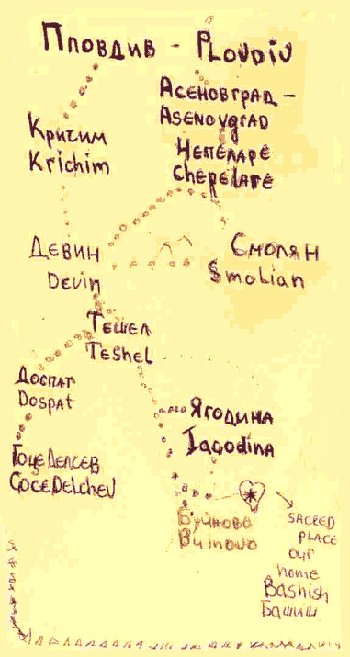 Пловдив - Plovdiv
Асеновград -
Asenovgrad
Чепеларе
Chepelare
Кричим
Krichim
Девин
Devin
Смолян
Smolian
Тешел
Teshel
Доспат
Dospat
Ягодина
Iagodina
Гоце Делчев
Goce Delchev
Буйново
Buinovo
sacred
place
our
home
Bashish
Башиш